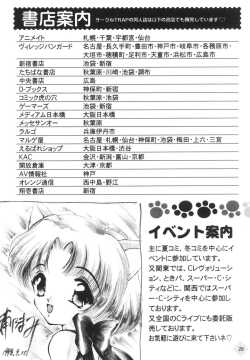 書店案内
サークルTRAPの同人誌は以下の店店でも販売しています♡
アニメイト 札幌・千葉・宇都宮・仙台
ヴィレッジバンガード 名古屋・長久手町・豊田市・神戸市・岐阜市・各務原市・
大垣市・穂積町・足利市・天童市・浜松市・広島市
新宿書店 池袋・新宿
たちばな書店 秋葉原・川崎・池袋・調布
中央書店 広島
D-ブックス 神保町・新宿
コミック虎の穴 秋葉原
ゲーマーズ 池袋・新宿
メディアム日本橋 大阪日本橋
メッセサンオー 秋葉原
ラルゴ 兵庫伊丹市
マルゲ屋 名古屋・仙台・神保町・池袋・梅田・上六・三宮
えるぱれショップ 大阪日本橋・渋谷
KAC 金沢・新潟・富山・京都
開放倉庫 大津・京都
AV情報社 神戸
オレンジ通信 西中島・野江
翔壱書店 新宿
イベント案内
主に夏コミ、冬コミを中心にイ
ベントに参加しています。
又関東では、Cレヴォリュー
ション、ときたま、スーパーC・シ
ティなどに、関西ではスーパ
ーC・シティを中心に参加し
ております。
又全国のCライブにも委託販
売しております。
お気軽に遊びに来て下さいネ♡